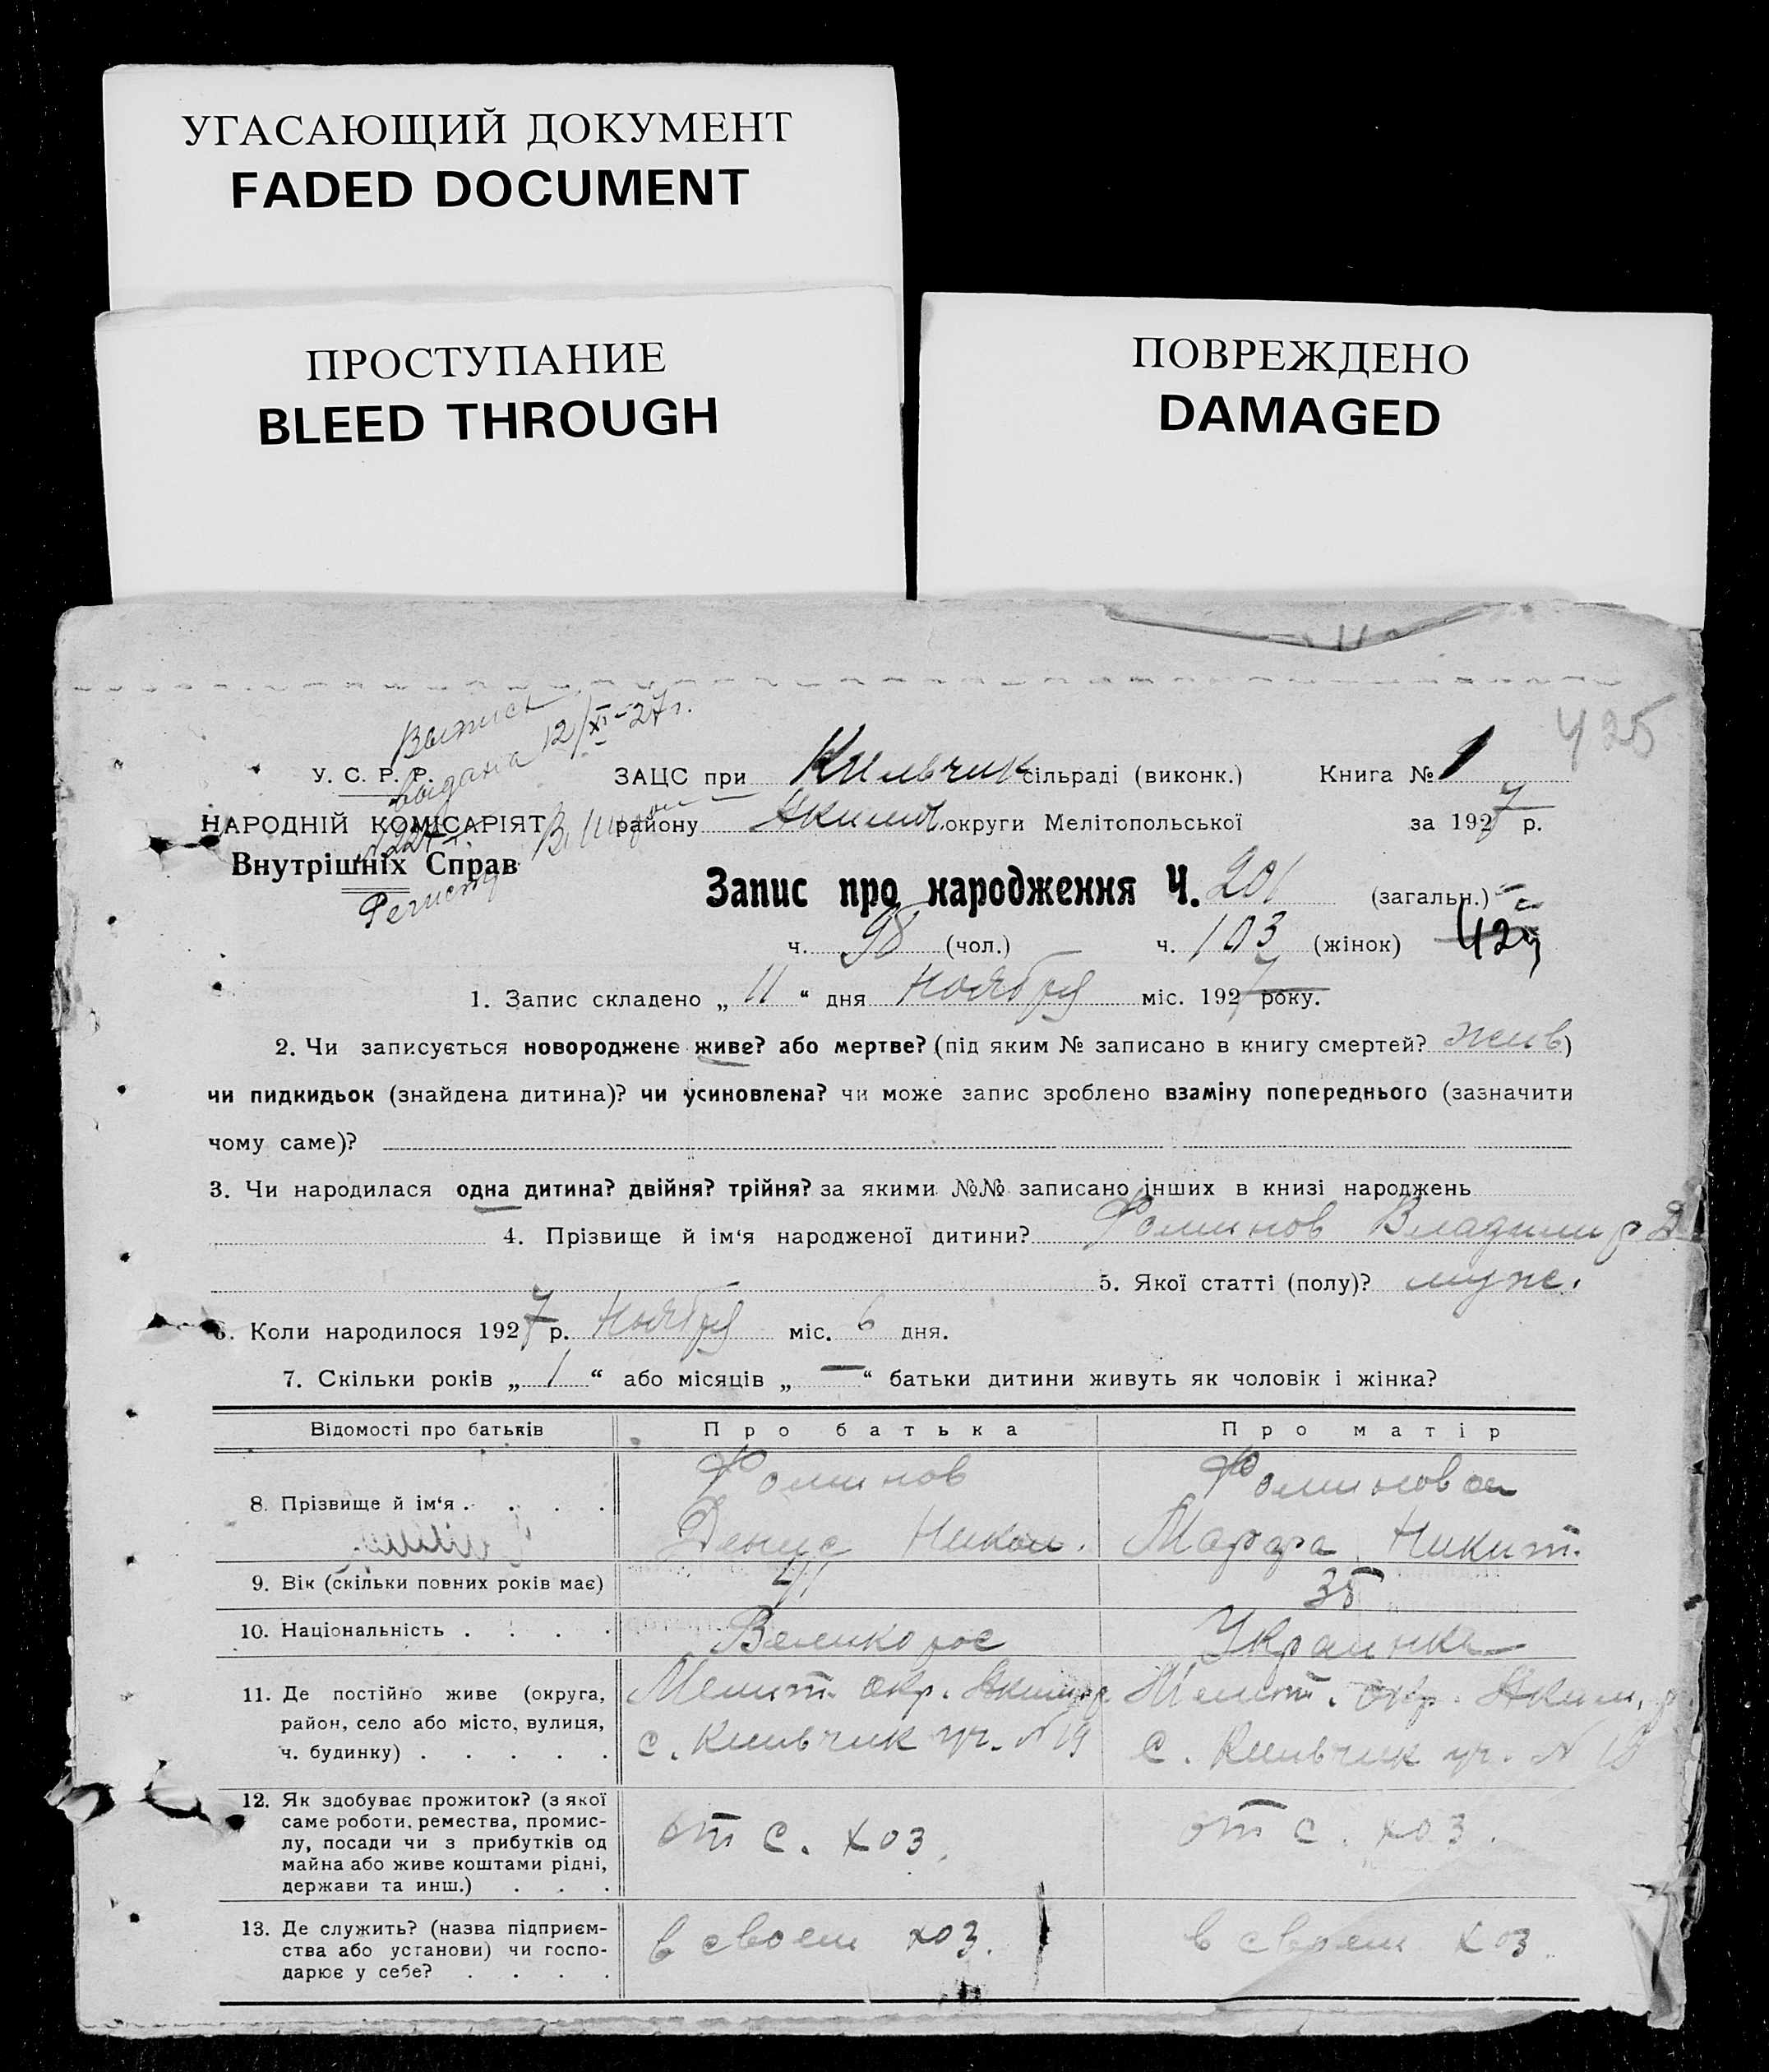 УГАСАЮЩИЙ ДОКУМЕНТ
FADED DOCUMENT
ПРОСТУПАНИЕ
BLEED THROUGH
ПОВРЕЖДЕНО
DAMAGED
425
Выпись
выдана 12/XI-27г.
У. С. Р. Р.
НАРОДНІЙ КОМІСАРІЯТ
Внутрішніх Справ
ЗАЦС при Кильчик сільраді (виконк.) Книга № 1
району Акимов. округи Мелітопольської за 1927 р.
Запис про народження Ч. 201 (загальн.)
ч. 98 (чол.) ч. 103 (жінок)
1. Запис складено „ 11 “ дня ноября міс. 1927 року.
2. Чи записується новороджене живе? або мертве? (під яким № записано в книгу смертей? жив)
чи пидкидьок (знайдена дитина)? чи усиновлена? чи може запис зроблено взаміну попереднього (зазначити
чому саме)?
3. Чи народилася одна дитина? двійня? трійня? за якими №№ записано інших в книзі народжень
4. Прізвище й ім‘я народженої дитини? Фоминов Владимир Д
5. Якої статті (полу)? муж.
6. Коли народилося 1927 р. Ноября міс. 6 дня.
7. Скільки років „ 1 “ або місяців „ — “ батьки дитини живуть як чоловік і жінка?
Відомості про батьків Про батька Про матір
8. Прізвище й ім‘я . . . . Фоминов Фоминова
Денис Никол. Марфа Никит.
9. Вік (скільки повних років має) 41 35
10. Національність . . . . Великорос Украинка
11. Де постійно живе (округа, район, село або місто, вулиця, ч. будинку) . . . . .
Мелит. окр. Аким. р Мелит. окр. Аким. р.
с. Кильчик уч. № 19 с. Кильчик уч. № 19
12. Як здобуває прожиток? (з якої
саме роботи, ремества, промис-
лу, посади чи з прибутків од
майна або живе коштами рідні,
держави та инш.) . . .
от с. хоз. от с. хоз.
13. Де служить? (назва підприєм-
ства або установи) чи госпо-
дарює у себе? . . . .
в своем хоз. в своем хоз.